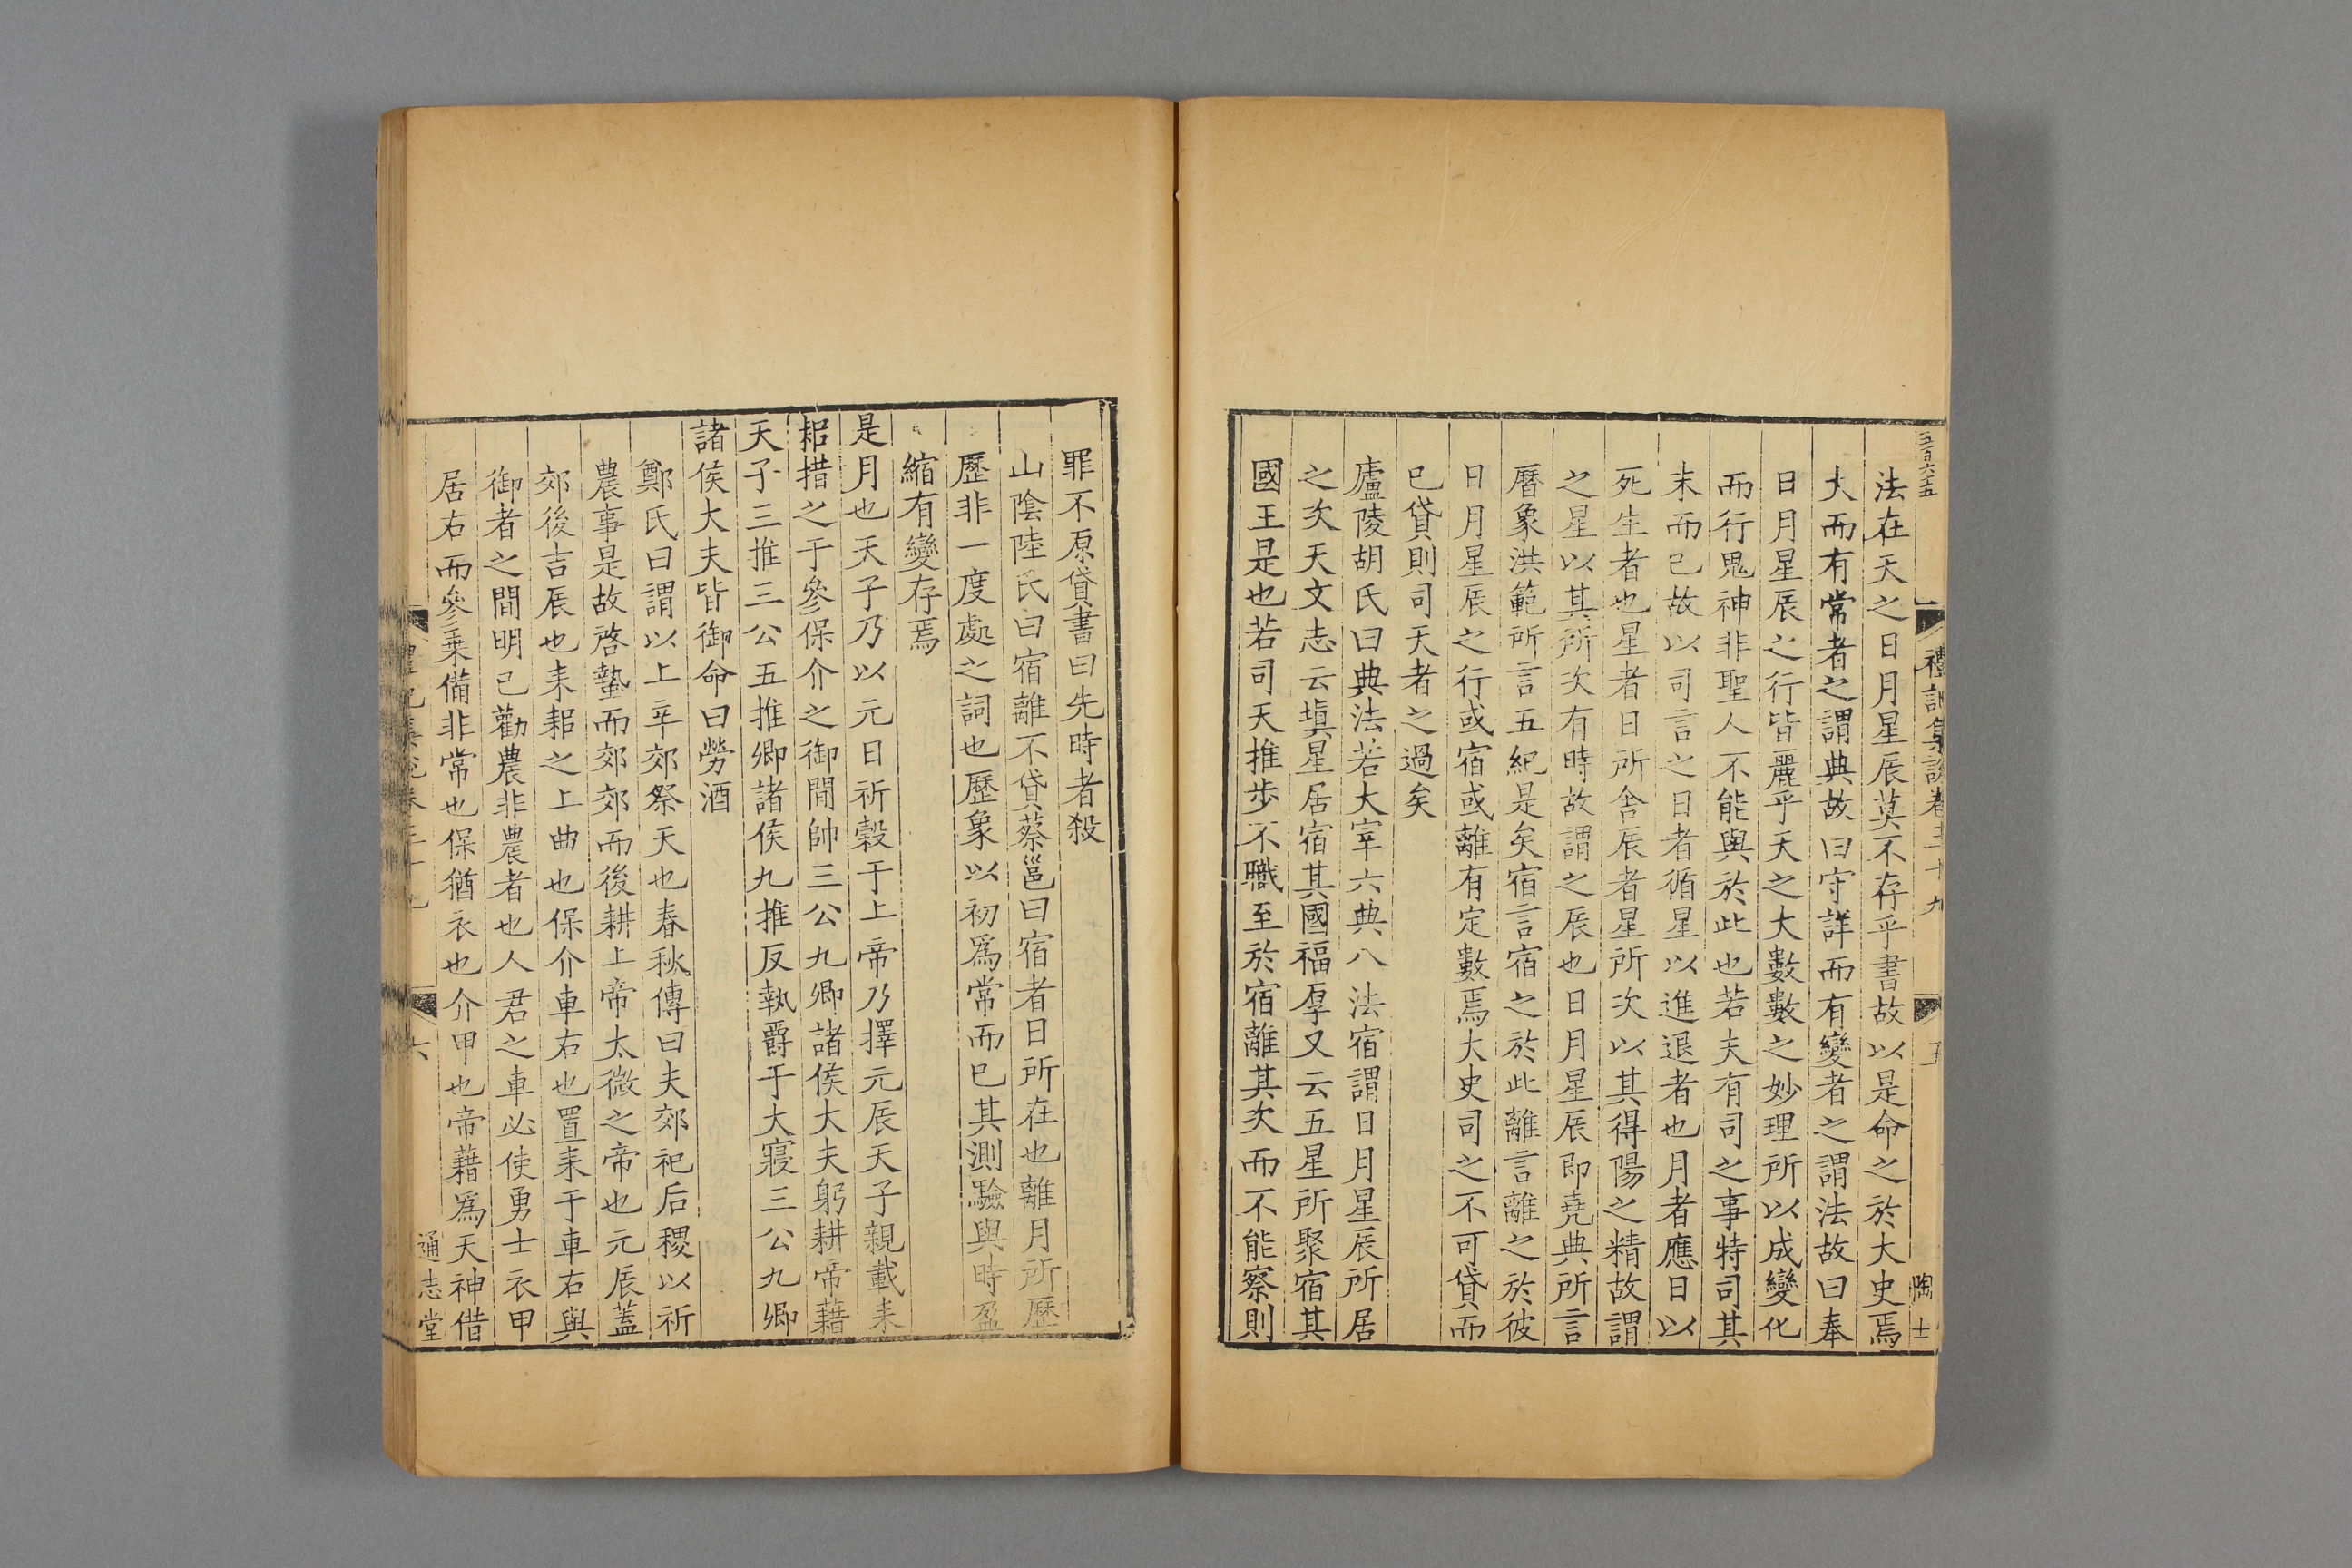 五百六十五
禮記集說卷三十九
五
陶士
法在天之日月星辰莫不存乎書故以是命之於大史焉
大而有常者之謂典故曰守詳而有變者之謂法故曰奉
日月星辰之行皆麗乎天之大數數之妙理所以成變化
而行鬼神非聖人不能與於此也若夫有司之事特司其
末而已故以司言之日者循星以進退者也月者應日以
死生者也星者日所舍辰者星所次以其得陽之精故謂
之星以其所次有時故謂之辰也日月星辰即堯典所言
曆象洪範所言五紀是矣宿言宿之於此離言離之於彼
日月星辰之行或宿或離有定數焉大史司之不可貸而
已貸則司天者之過矣
廬陵胡氏曰典法若大宰六典八法宿謂日月星辰所居
之次天文志云塡星居宿其國福厚又云五星所聚宿其
國王是也若司天推步不職至於宿離其次而不能察則
罪不原貸書曰先時者殺
山陰陸氏曰宿離不貸蔡邕曰宿者日所在也離月所歷
歷非一度處之詞也歷象以初爲常而已其測驗與時盈
縮有變存焉
是月也天子乃以元日祈穀于上帝乃擇元辰天子親載耒
耜措之于參保介之御閒帥三公九卿諸侯大夫躬耕帝藉
天子三推三公五推卿諸侯九推反執爵于大寢三公九卿
諸侯大夫皆御命曰勞酒
鄭氏曰謂以上辛郊祭天也春秋傳曰夫郊祀后稷以祈
農事是故啓蟄而郊郊而後耕上帝太微之帝也元辰蓋
郊後吉辰也耒耜之上曲也保介車右也置耒于車右與
御者之間明已勸農非農者也人君之車必使勇士衣甲
居右而參乗備非常也保猶衣也介甲也帝藉爲天神借
禮記集說卷三十九
六
通志堂